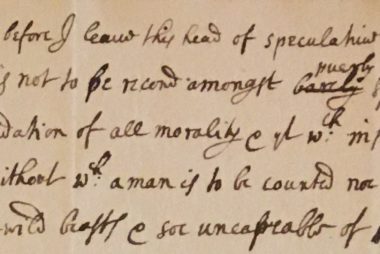 before I leave this head of speculative
is not to be recond amongst barely purely
dation of all morality & yt wch in
without wch a man is to be counted noe
wild beasts & soe uncapeable of